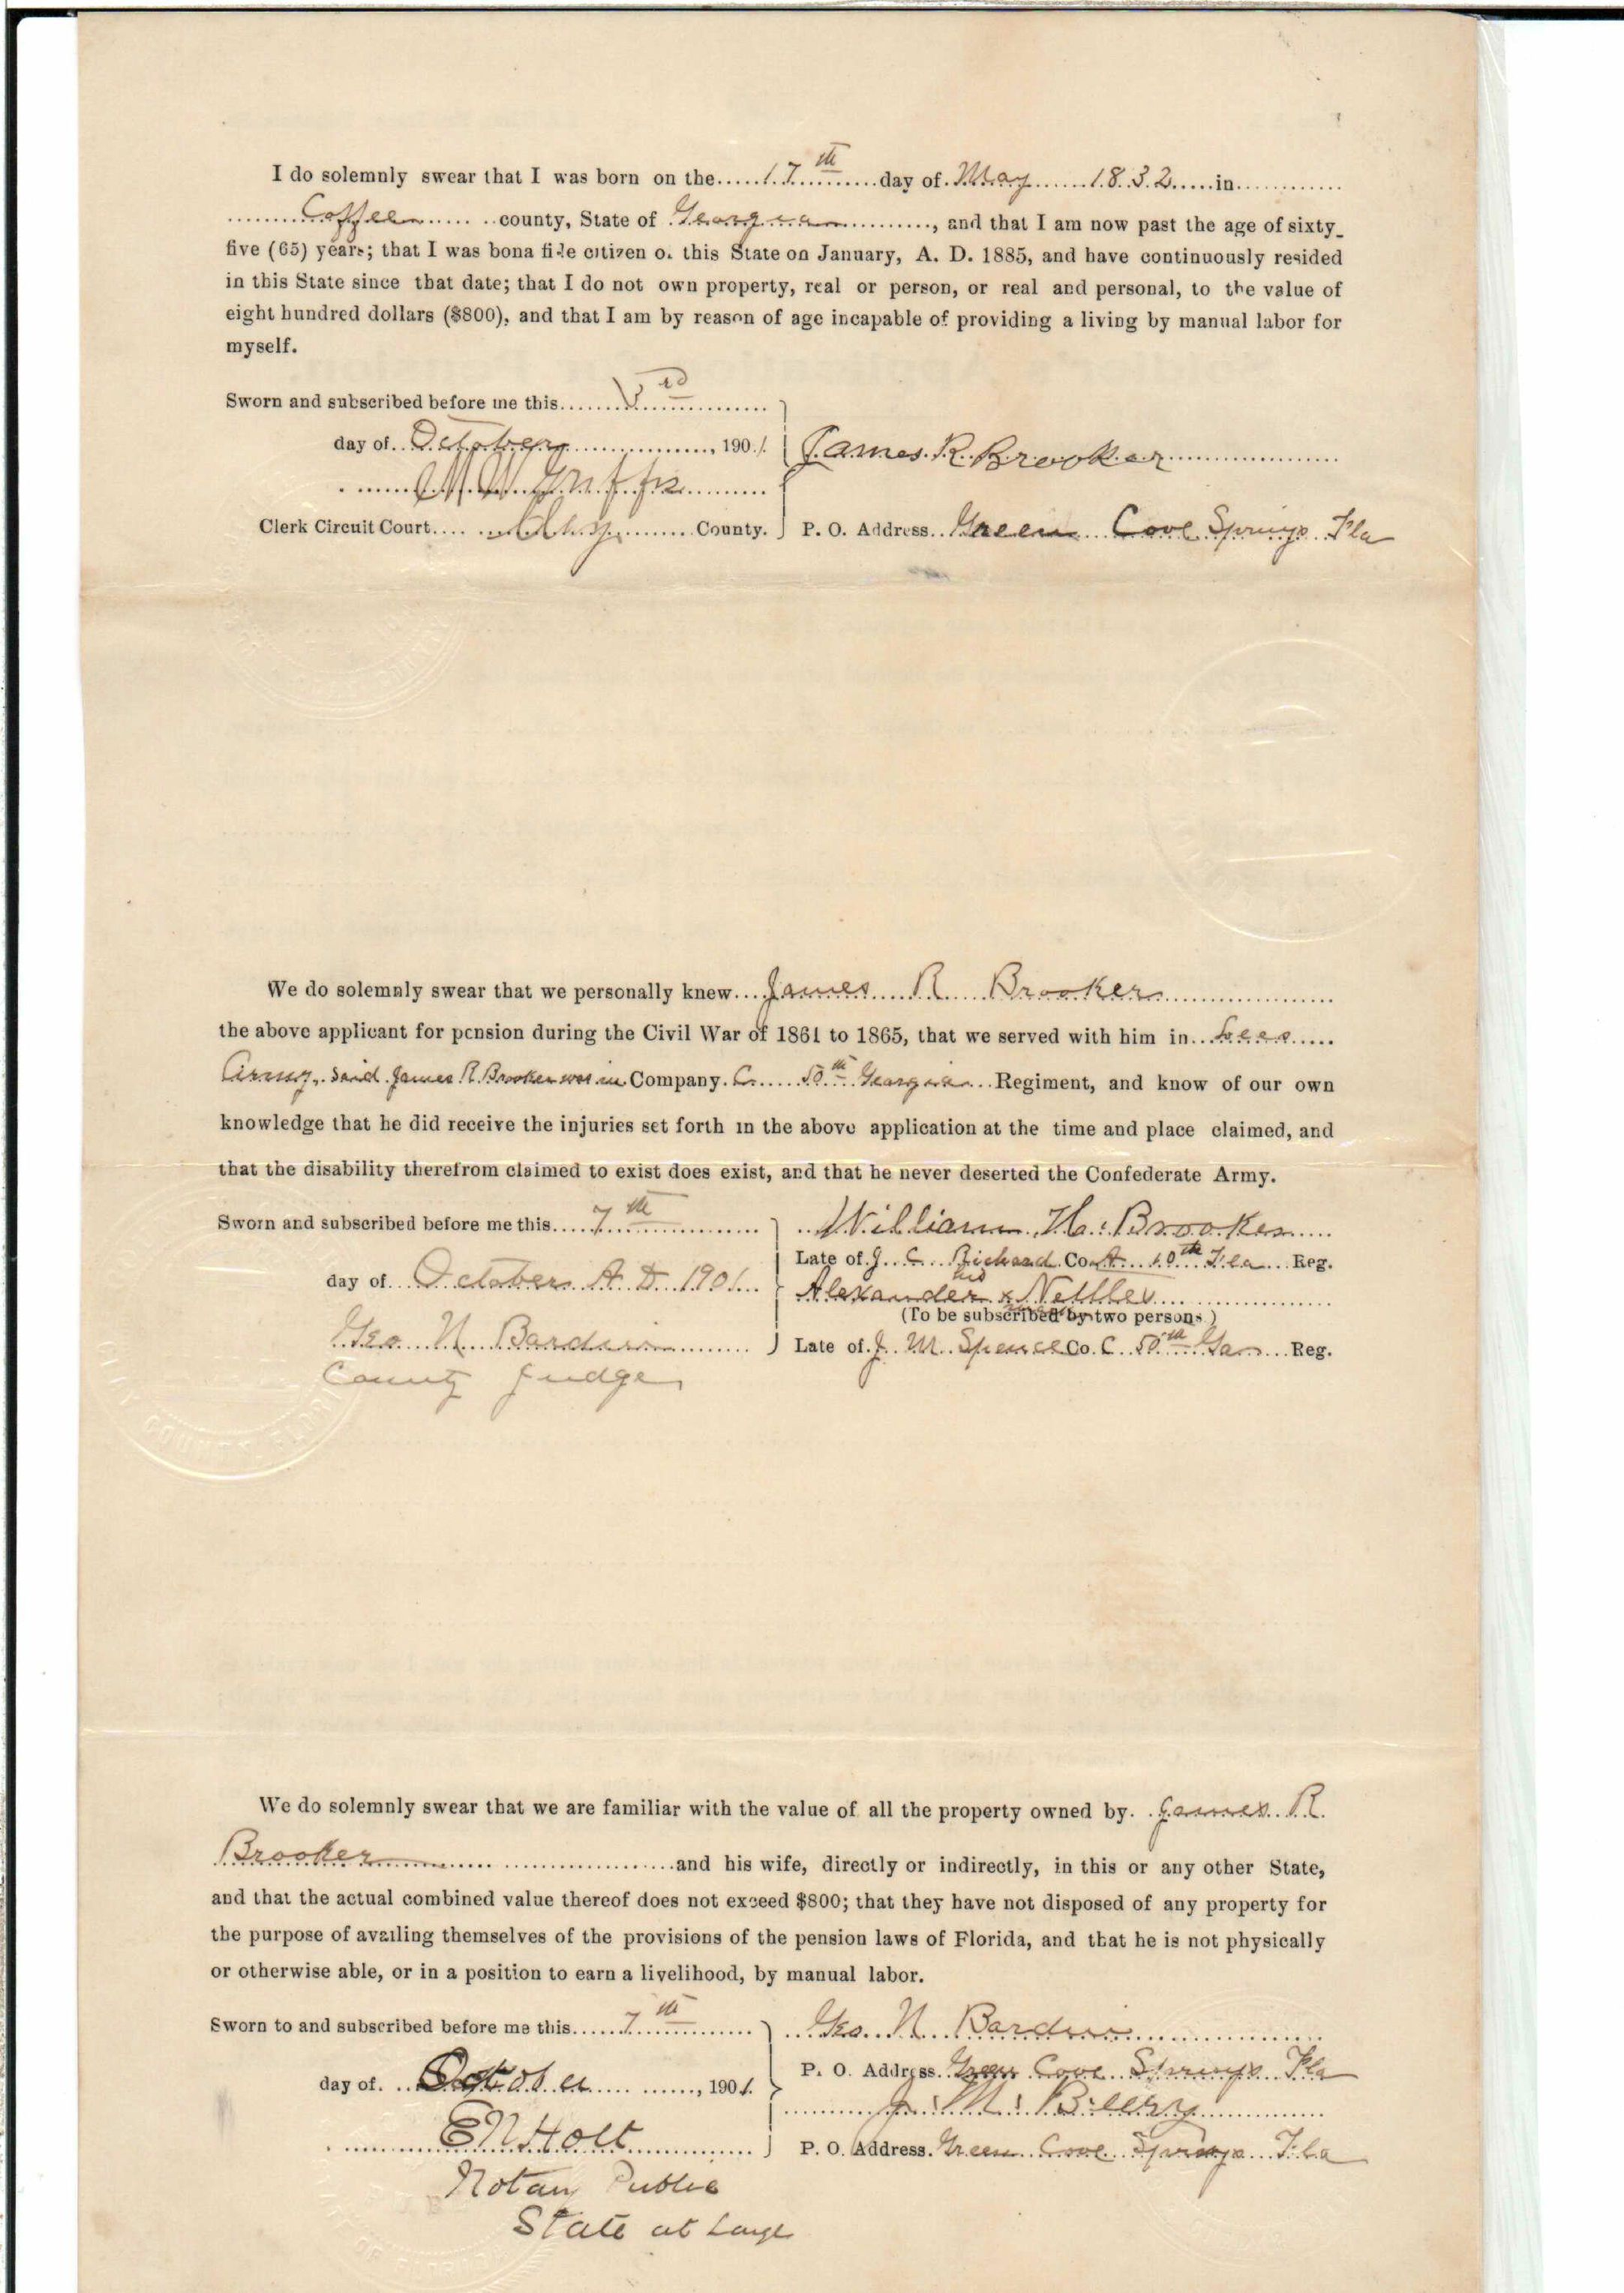 I do solemnly swear that I was born on the 17th day of May 1832 in
Coffee county, State of Georgia, and that I am now past the age of sixty_
five (65) years; that I was bona fide citizen of this State on January, A. D. 1885, and have continuously resided
in this State since that date; that I do not own property, real or person, or real and personal, to the value of
eight hundred dollars ($800), and that I am by reason of age incapable of providing a living by manual labor for
myself.
Sworn and subscribed before me this 3rd
day of October, 1901
James R. Brooker
Clerk Circuit Court Clay County.
P. O. Address Green Cove Springs Fla
We do solemnly swear that we personally knew James R Brooker
the above applicant for pension during the Civil War of 1861 to 1865, that we served with him in Lees
Army, said James R Brooker was in Company C 50th Georgia Regiment, and know of our own
knowledge that he did receive the injuries set forth in the above application at the time and place claimed, and
that the disability therefrom claimed to exist does exist, and that he never deserted the Confederate Army.
Sworn and subscribed before me this 7th
William H. Brooker
Late of J. C. Richard Co. A 10th Fla Reg.
day of October A. D. 1901
his
Alexander x Nettles
(To be subscribed by two persons)
Geo N Bardin
Late of J. M. Spence Co. C 50th Ga Reg.
County Judge
COUNTY, FLORIDA
We do solemnly swear that we are familiar with the value of all the property owned by James R.
Brooker and his wife, directly or indirectly, in this or any other State,
and that the actual combined value thereof does not exceed $800; that they have not disposed of any property for
the purpose of availing themselves of the provisions of the pension laws of Florida, and that he is not physically
or otherwise able, or in a position to earn a livelihood, by manual labor.
Sworn to and subscribed before me this 7th
Geo. N Bardin
P. O. Address Green Cove Springs Fla
day of October, 1901
J. M. Beery
E N Holt
P. O. Address. Green Cove Springs Fla
Notary Public
State at Large